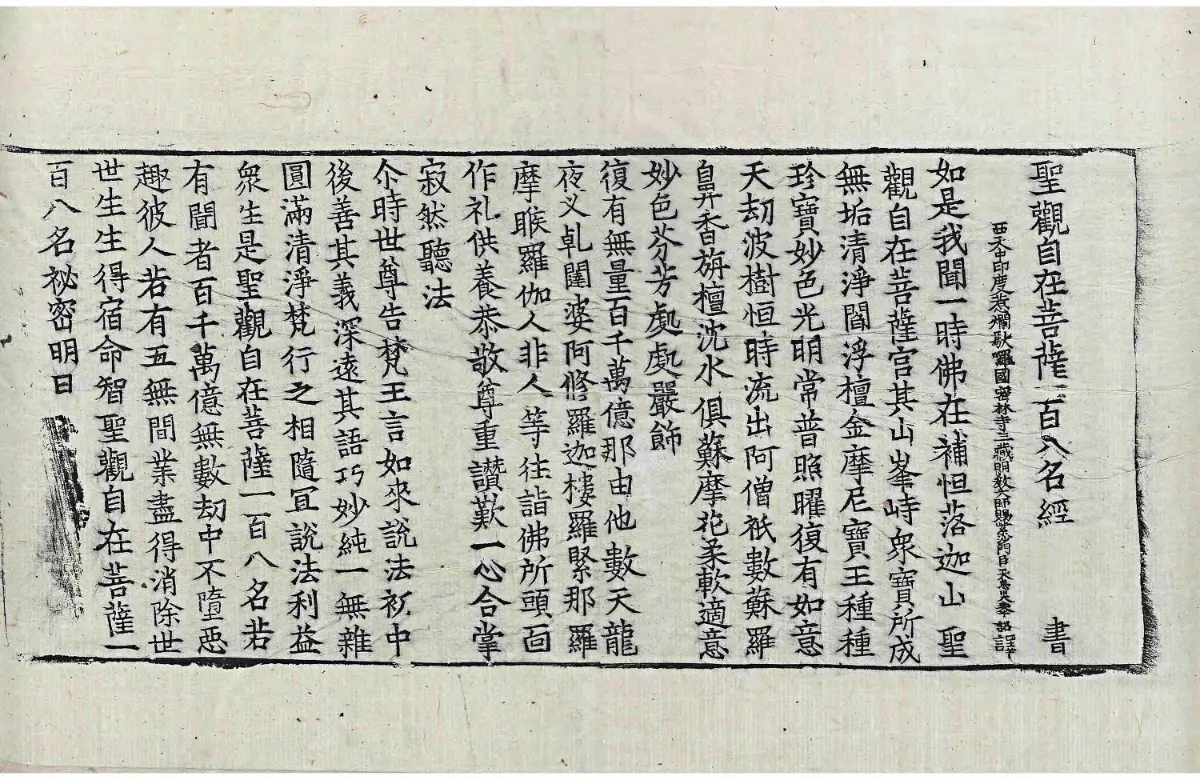 聖觀自在菩薩一百八名經 書
西天中印度惹爛馱囉國密林寺三藏明教大師賜紫沙門臣天息災奉 詔譯
如是我聞一時佛在補怛落迦山 聖
觀自在菩薩宮其山峯峙衆寶所成
無垢清淨閻浮檀金摩尼寶王種種
珍寶妙色光明常普照曜復有如意
天劫波樹恒時流出阿僧祇數蘇羅
鼻香旃檀沈水俱蘇摩花柔軟適意
妙色芬芳處處嚴飾
復有無量百千萬億那由他數天龍
夜叉乹闥婆阿修羅迦樓羅緊那羅
摩睺羅伽人非人等往詣佛所頭面
作礼供養恭敬尊重讃歎一心合掌
寂然聽法
尒時世尊告梵王言如來說法初中
後善其義深遠其語巧妙純一無雜
圓滿清淨梵行之相隨冝說法利益
衆生是聖觀自在菩薩一百八名若
有聞者百千萬億無數劫中不墮惡
趣彼人若有五無間業盡得消除世
世生生得宿命智聖觀自在菩薩一
百八名祕密明曰